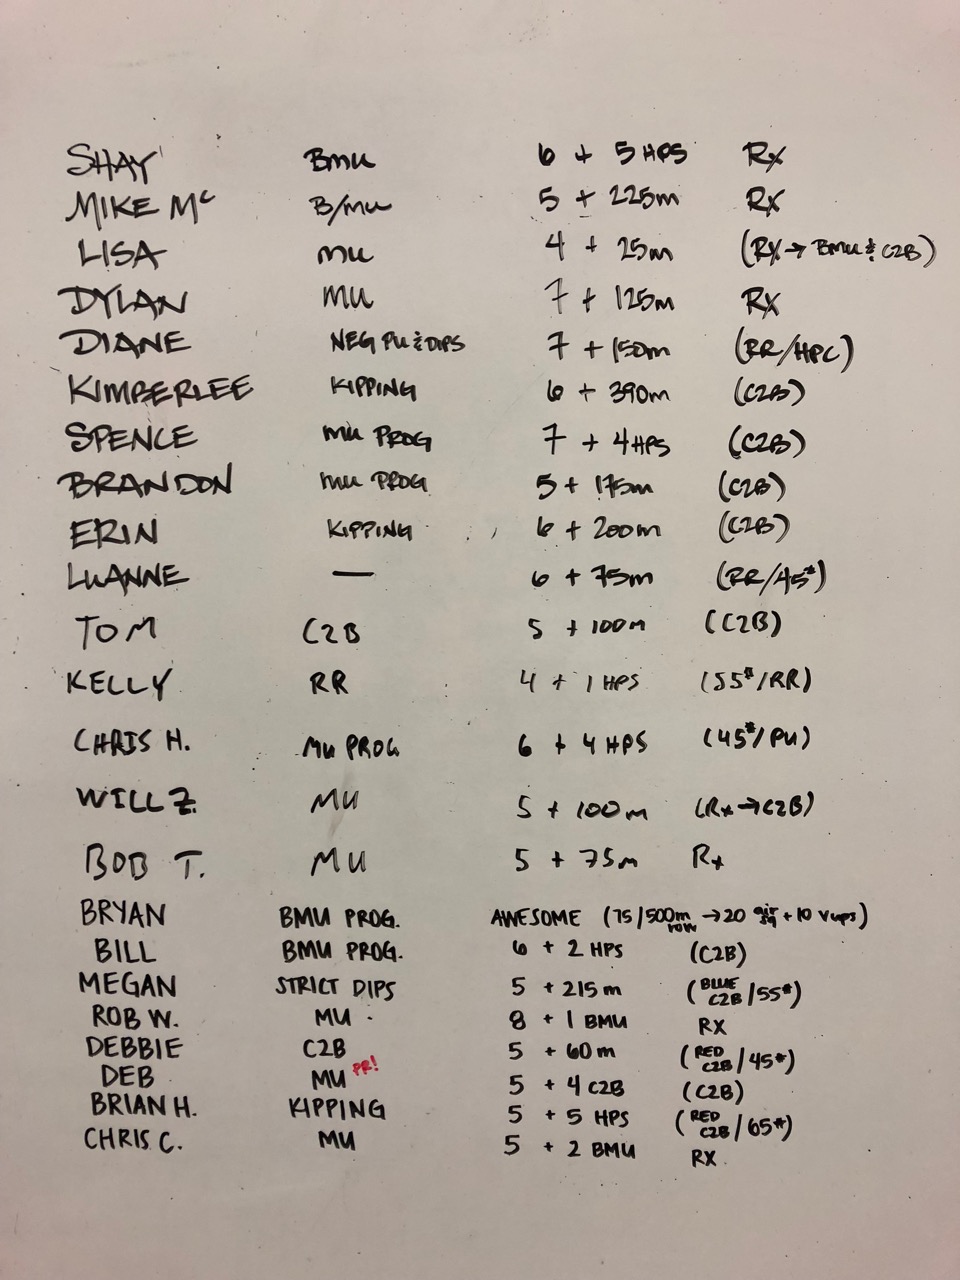 SHAY BMU 6 + 5 HPS Rx
MIKE Mc B/MU 5 + 225m Rx
LISA MU 4 + 25m (Rx → BMU & C2B)
DYLAN MU 7 + 125m Rx
DIANE NEG PU & DIPS 7 + 150m (RR/HPC)
KIMBERLEE KIPPING 6 + 390m (C2B)
SPENCE MU PROG 7 + 4 HPS (C2B)
BRANDON MU PROG 5 + 175m (C2B)
ERIN KIPPING 6 + 200m (C2B)
LUANNE — 6 + 75m (RR/45#)
TOM C2B 5 + 100m (C2B)
KELLY RR 4 + 1 HPS (55#/RR)
CHRIS H. MU PROG 6 + 4 HPS (45#/PU)
WILL Z. MU 5 + 100m (Rx → C2B)
BOB T. MU 5 + 75m Rx
BRYAN BMU PROG. AWESOME (75/500m row → 20 air sq + 10 vups)
BILL BMU PROG. 6 + 2 HPS (C2B)
MEGAN STRICT DIPS 5 + 215m (BLUE C2B/55#)
ROB W. MU 8 + 1 BMU RX
DEBBIE C2B 5 + 60m (RED C2B/45#)
DEB MU PR! 5 + 4 C2B (C2B)
BRIAN H. KIPPING 5 + 5 HPS (RED C2B/65#)
CHRIS C. MU 5 + 2 BMU RX